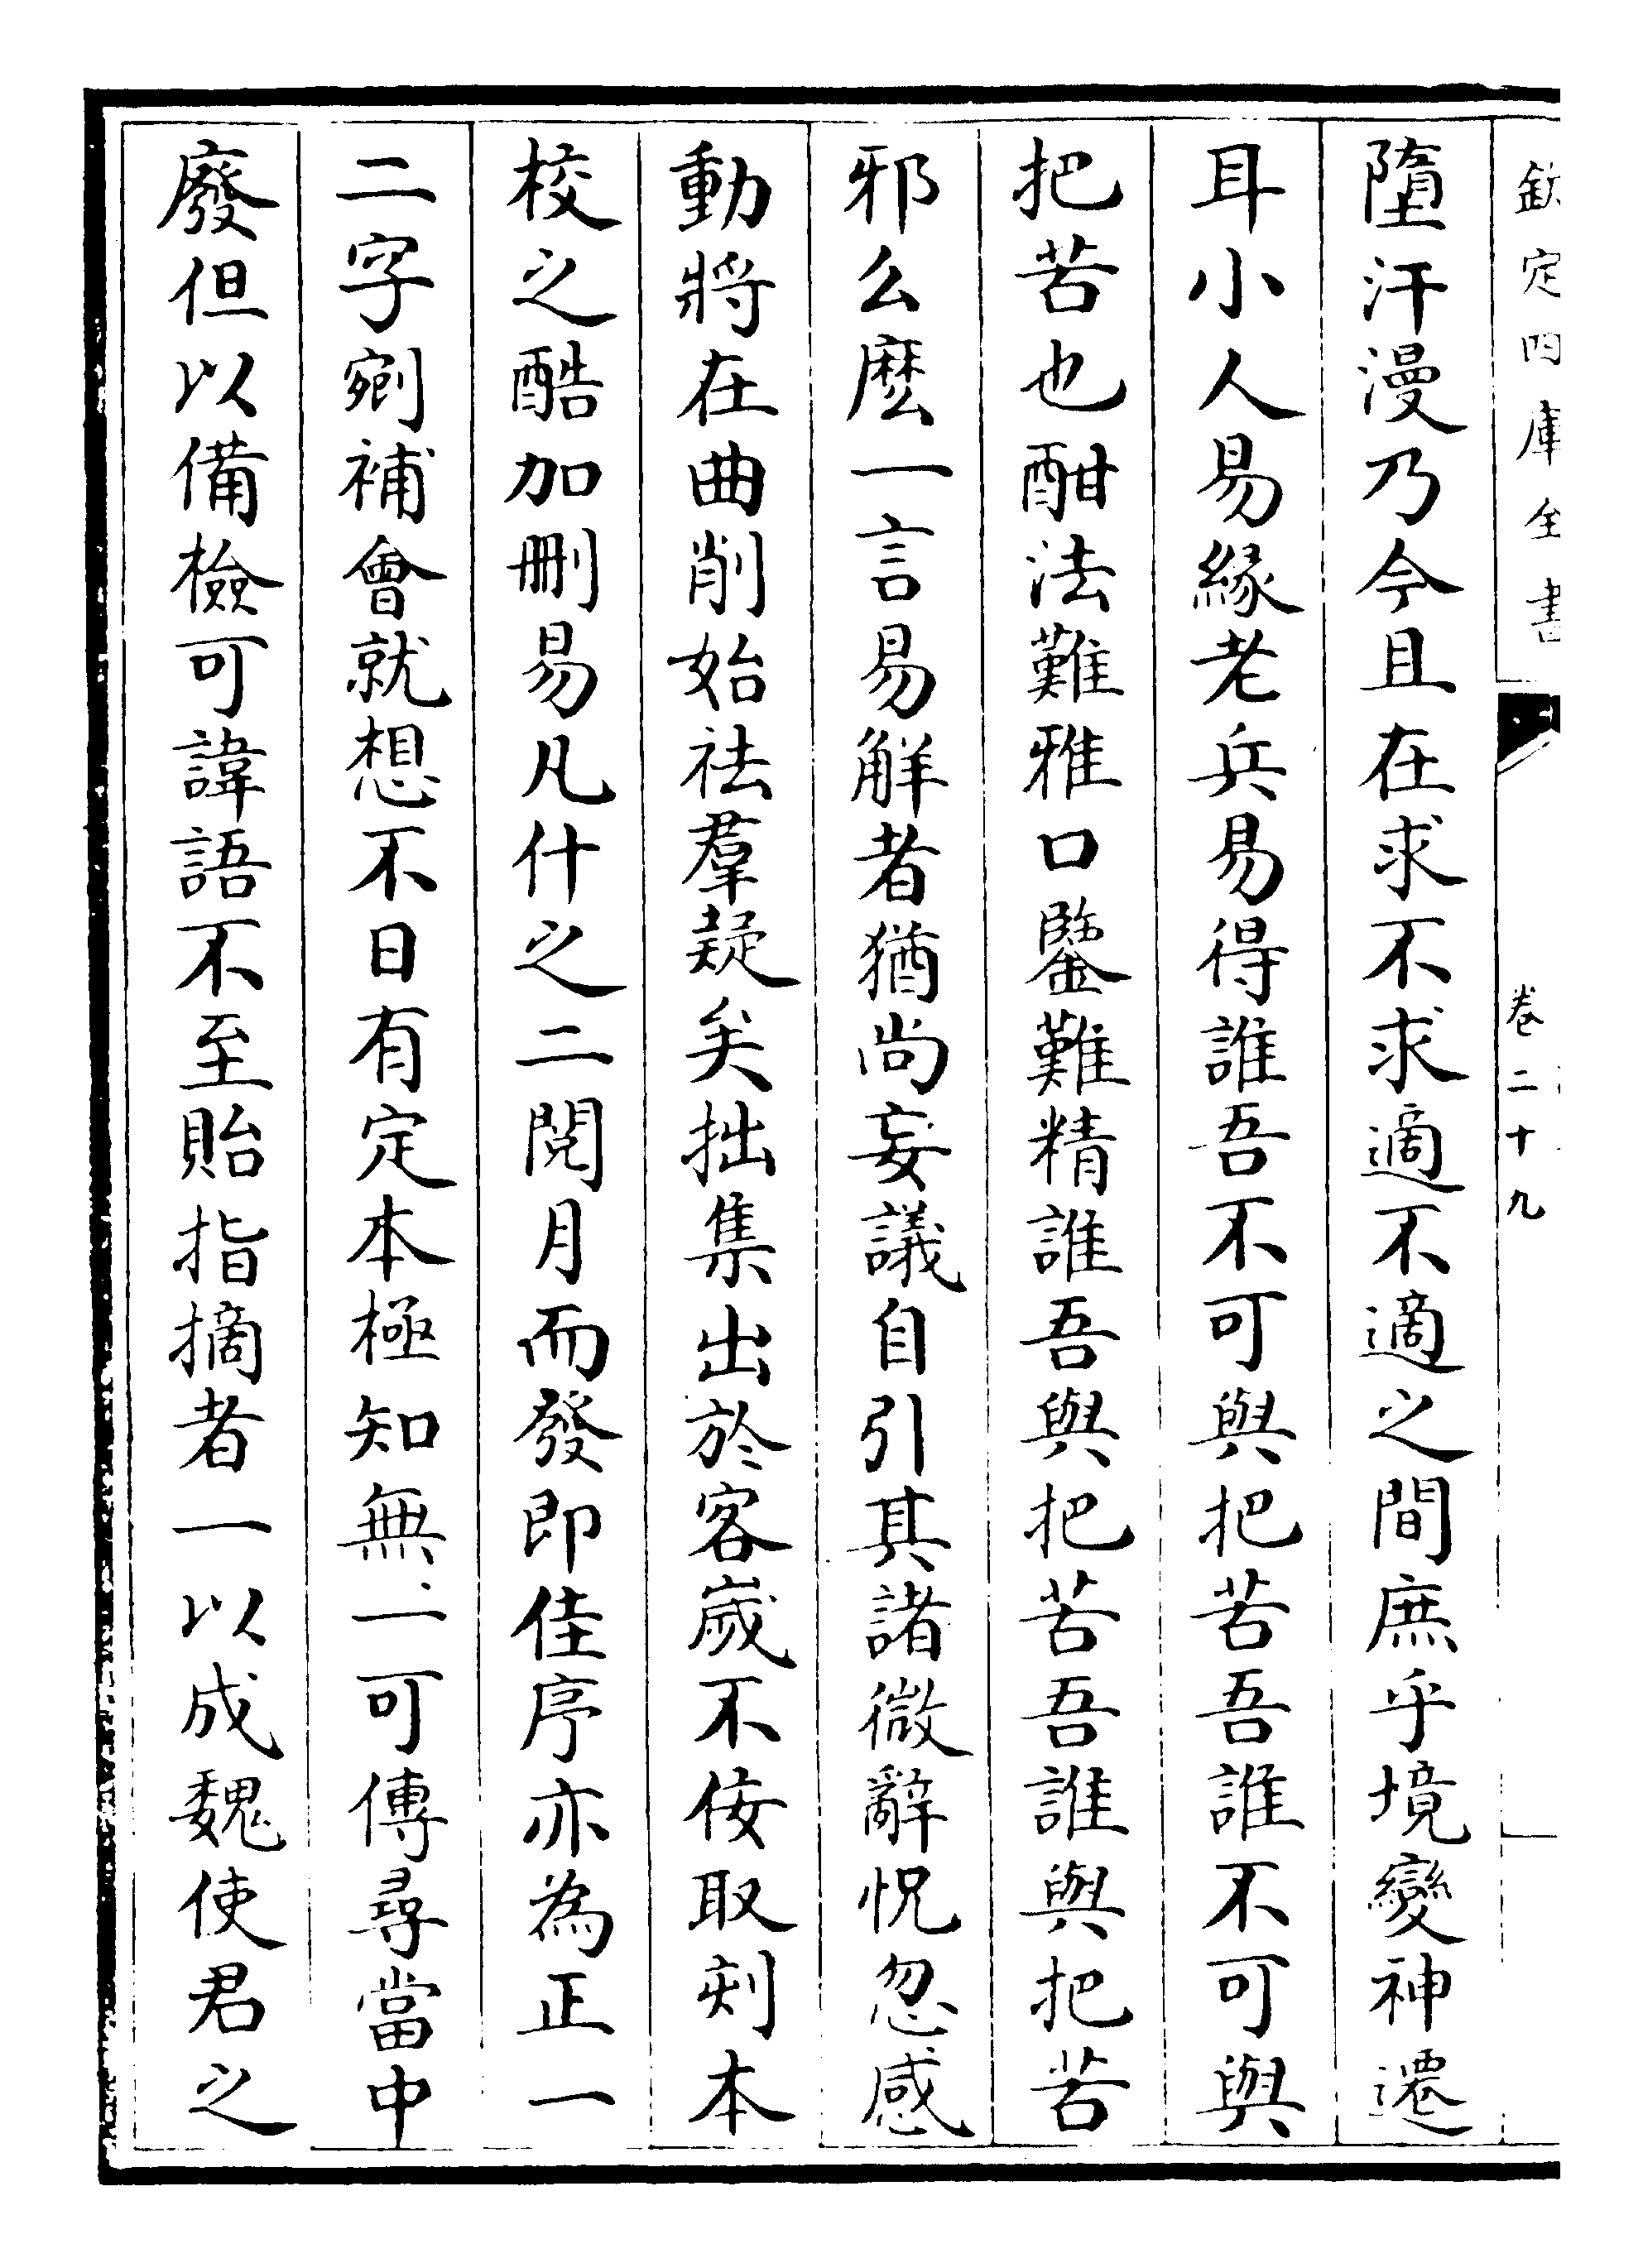 欽定四庫全書
卷二十九
墮汗漫乃今且在求不求適不適之間庶乎境變神遷
耳小人易緣老兵易得誰吾不可與把苦吾誰不可與
把苦也酣法難雅口鑒難精誰吾與把苦吾誰與把苦
邪么麽一言易解者猶尚妄議自引其諸微辭怳忽感
動將在曲削始祛羣疑矣拙集出於客嵗不佞取刻本
校之酷加刪易凡什之二閱月而發即佳序亦為正一
二字剜補會就想不日有定本極知無一可傳尋當中
廢但以備檢可諱語不至貽指摘者一以成魏使君之